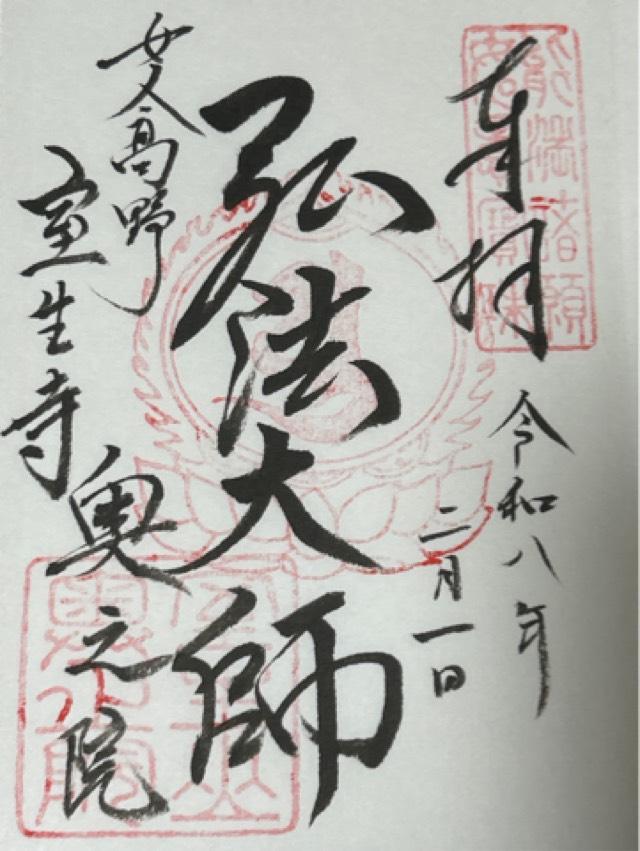 奉拝
令和八年
二月一日
弘法大師
女人高野
室生寺
奥之院